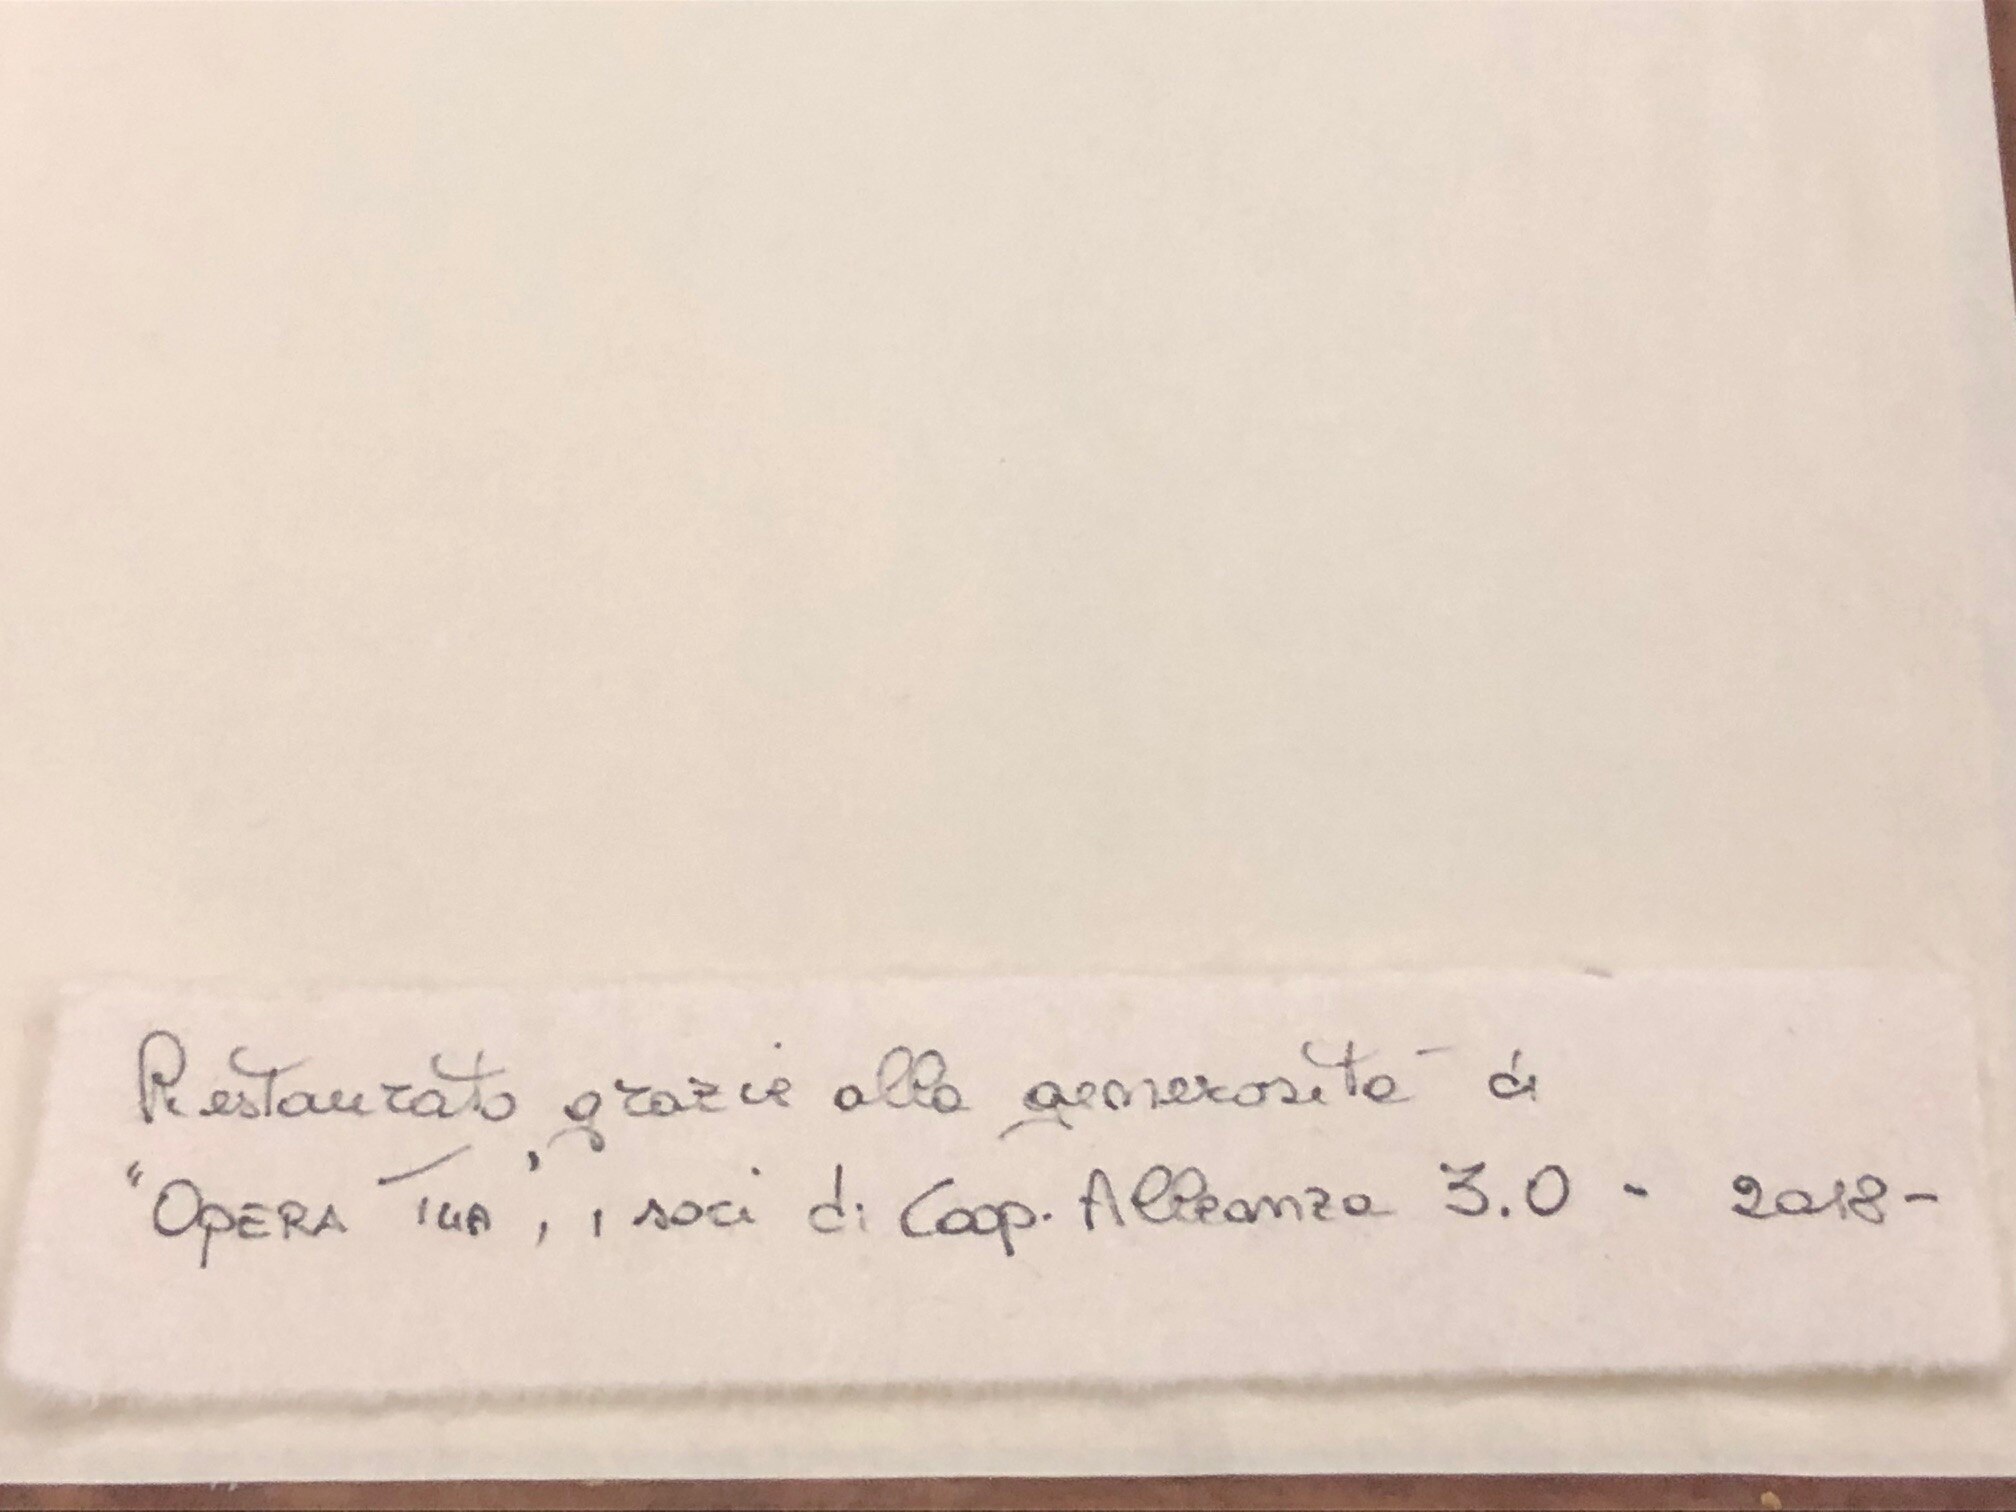 Restaurato grazie alla generosità di
"OPERA TUA", i soci di Coop. Alleanza 3.0 - 2018-